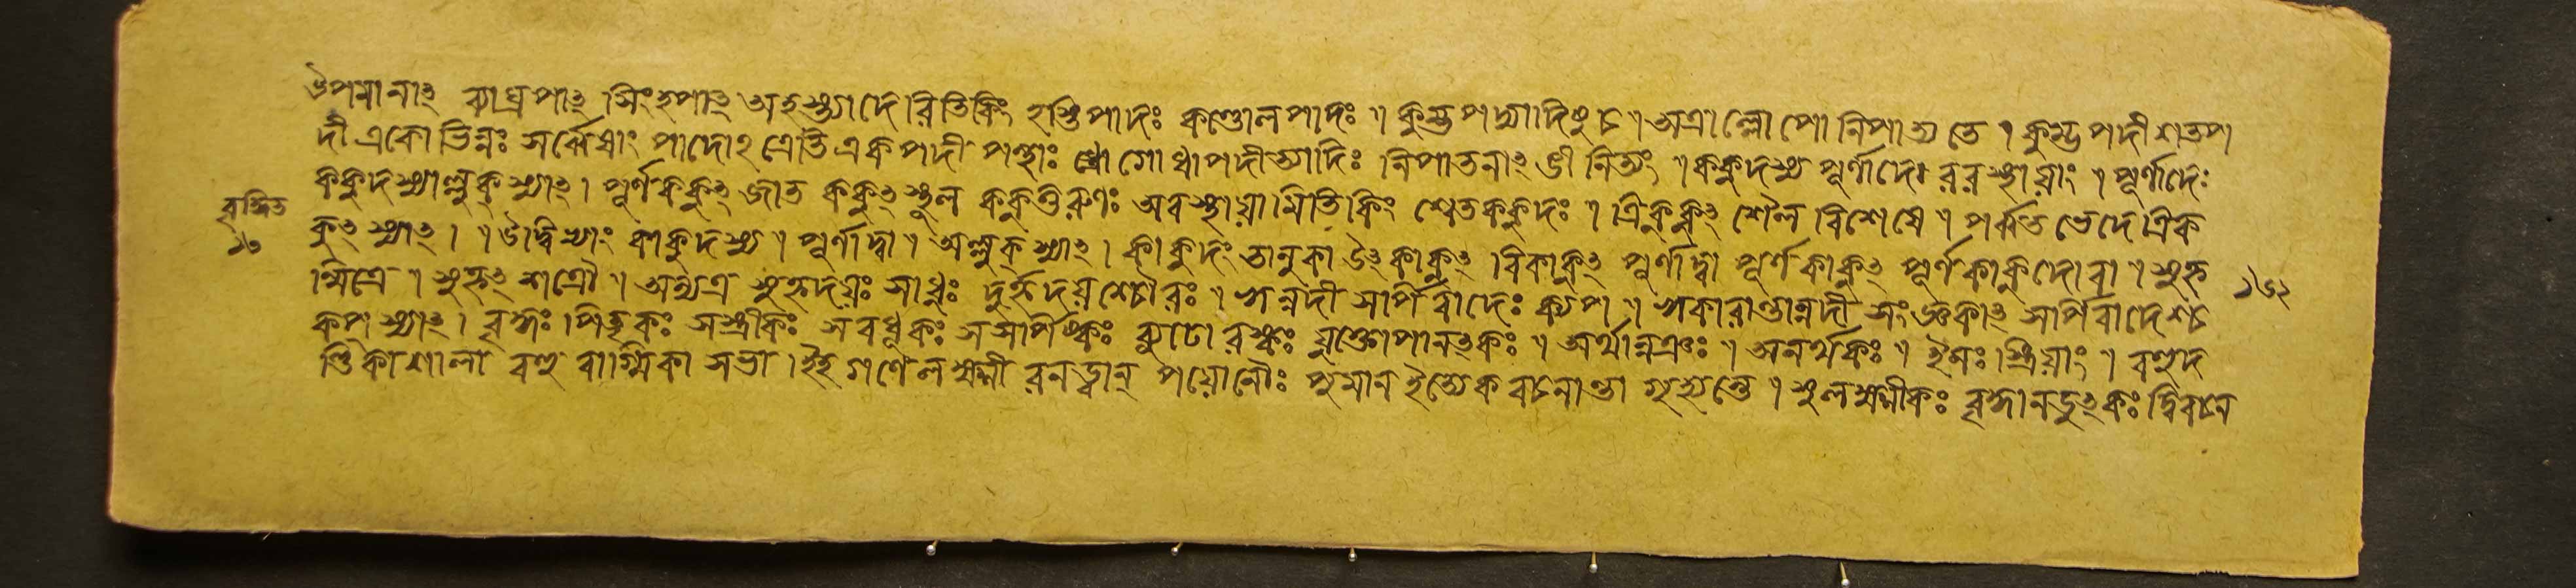 উপমানাৎ ব্যাঘ্রপাৎ সিংহপাৎ অহস্ত্যাদেরিতিকিং হস্তিপাদঃ কণ্ডোলপাদঃ ॥ কুম্ভপদ্যাদিষু চ ॥ অত্রাল্লোপো নিপাত্যতে । কুম্ভপদী শতপ
দী একো ভিন্নঃ সর্ব্বেষাং পাদোঽত্রেতি একপদী পন্থাঃ গোধাপদীত্যাদিঃ নিপাতনাৎ ঙী নিত্যং । ককুদস্য পূর্ণাদেঃ রবস্থায়াং । পূর্ণাদেঃ
ককুদস্যাল্লুক্ স্যাৎ । পূর্ণককুৎ জাতককুৎ স্থূলককুত্তরুণঃ অবস্থায়ামিতিকিং শ্বেতককুদঃ ॥ ত্রিককুৎ শৈলবিশেষে ॥ পর্ব্বতভেদে ত্রিক
কুৎ স্যাৎ । ॥ উদ্বিভ্যাং কাকুদস্য ॥ পূর্ণাদ্বা ॥ অল্লুক্ স্যাৎ । কাকুদং তালুকা উৎকাকুৎ বিকাকুৎ পূর্ণাদ্বা পূর্ণকাকুৎ পূর্ণকাকুদোবা ॥ সুহৃ
ন্মিত্রে ॥ দুর্হৃৎ শত্রৌ ॥ অন্যত্র সুহৃদয়ঃ সাধুঃ দুর্হৃদয়শ্চৌরঃ ॥ ঋন্নদী সর্পিরাদেঃ কপ্ ॥ ঋকারান্তান্নদী সংজ্ঞকাৎ সর্পিরাদেশ্চ
কপ্ স্যাৎ । বহুপিতৃকঃ সস্ত্রীকঃ সবধূকঃ সসর্পিষ্কঃ ব্যূঢোরস্কঃ যুক্তোপানৎকঃ ॥ অর্থান্নঞঃ ॥ অনর্থকঃ ॥ ইনঃ স্ত্রিয়াং ॥ বহুদ
ণ্ডিকাশালা বহুবাগ্মিকা সভা । ইহ গণে লক্ষ্মী রনড্বান্ পয়োনৌঃ পুমান ইত্যেকবচনান্তা গৃহ্যন্তে ॥ সুলক্ষ্মীকঃ বহ্বনডুৎকঃ দ্বিবচনে
১৬
১৬২